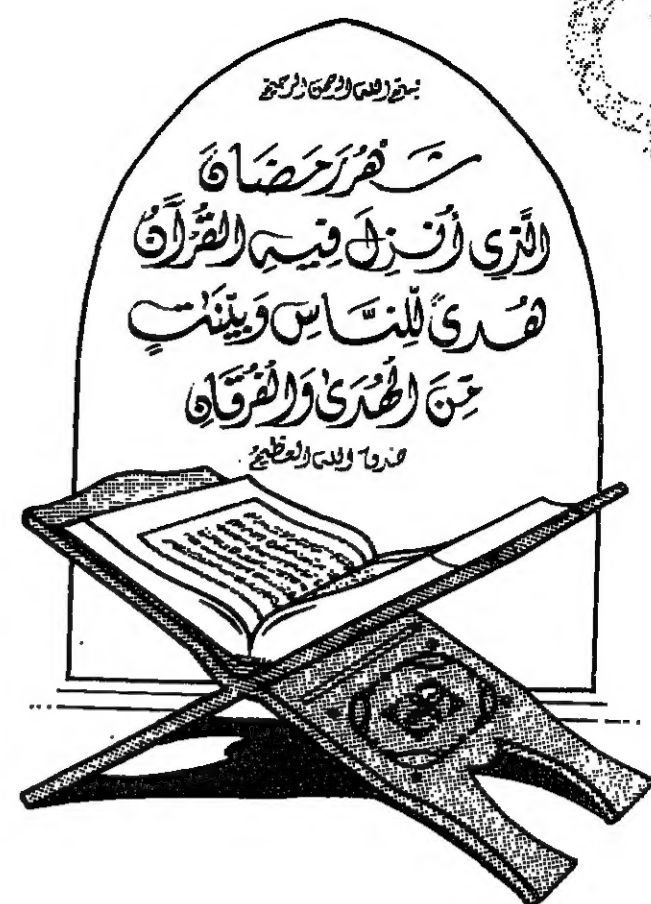 بسم الله الرحمن الرحيم
شَهْرُ رَمَضَانَ
الَّذِي أُنْزِلَ فِيهِ الْقُرْآنُ
هُدىً لِّلنَّاسِ وَبَيِّنَٰتٍ
مِّنَ الْهُدَىٰ وَالْفُرْقَانِ
صدق الله العظيم